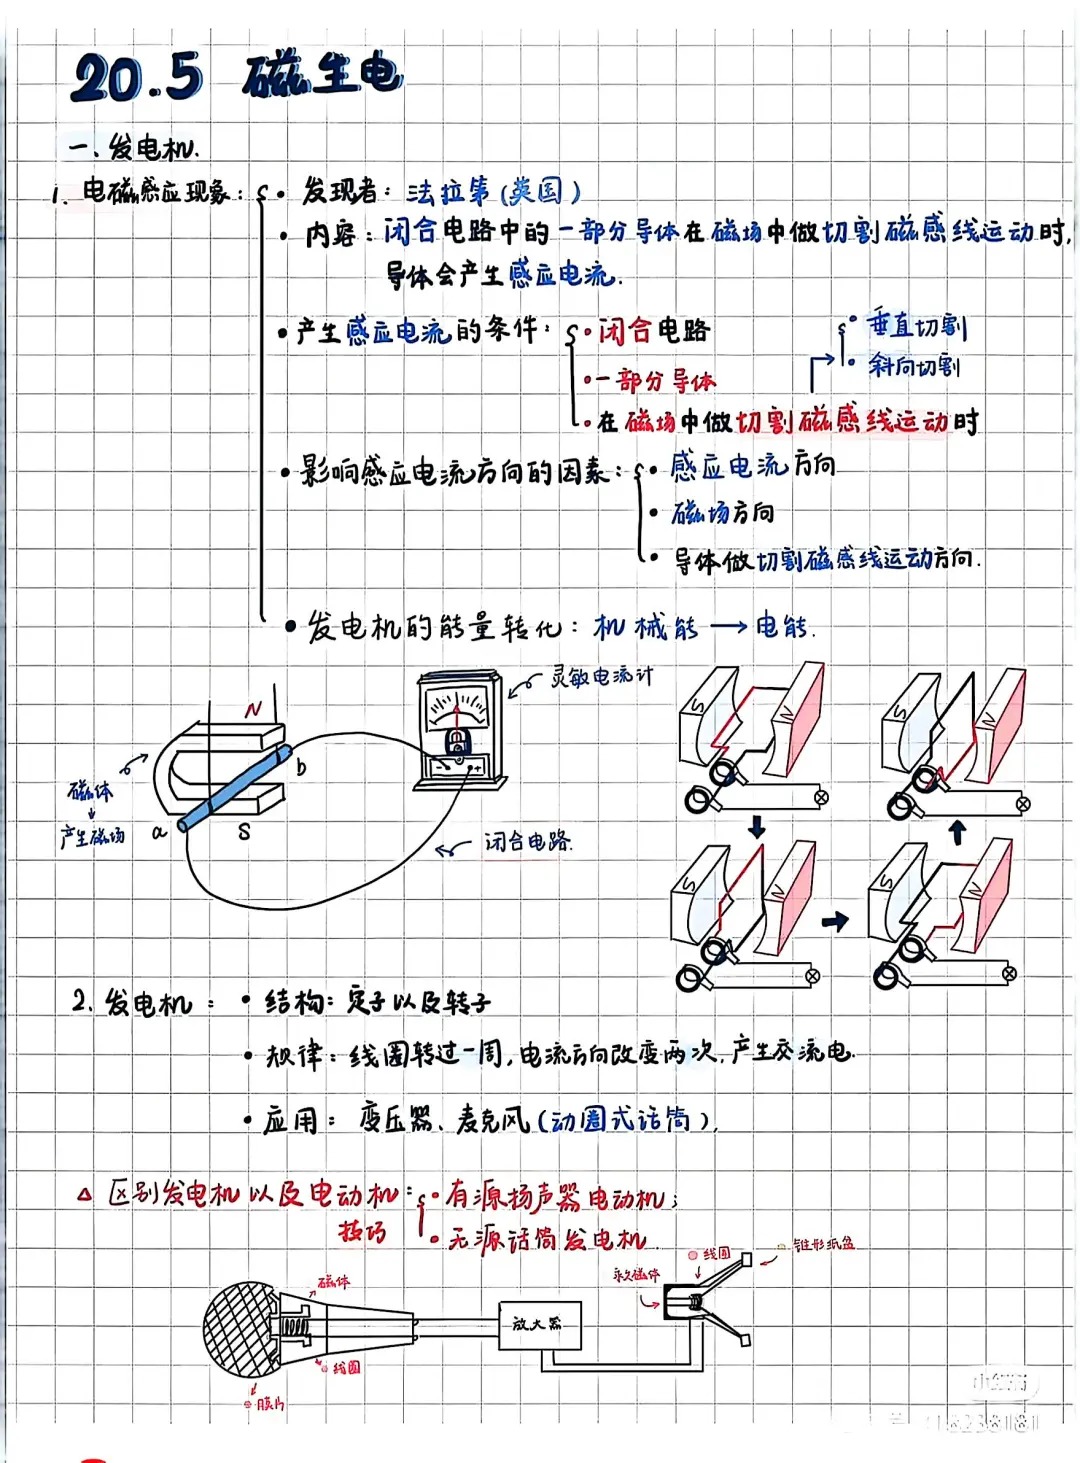 20.5 磁生电
一、发电机.
1. 电磁感应现象: · 发现者: 法拉第(英国)
· 内容: 闭合电路中的一部分导体在磁场中做切割磁感线运动时,
导体会产生感应电流.
· 产生感应电流的条件: · 闭合电路
· 垂直切割
· 斜向切割
· 一部分导体
· 在磁场中做切割磁感线运动时
· 影响感应电流方向的因素: · 感应电流方向
· 磁场方向
· 导体做切割磁感线运动方向.
· 发电机的能量转化: 机械能 → 电能.
灵敏电流计
N
b
磁体
产生磁场
a
S
闭合电路.
S N
S N
S N
S N
2. 发电机: · 结构: 定子以及转子
· 规律: 线圈转过一周, 电流方向改变两次, 产生交流电.
· 应用: 变压器、麦克风(动圈式话筒).
△ 区别发电机以及电动机: · 有源扬声器电动机;
技巧 · 无源话筒发电机
线圈
锥形纸盆
永久磁体
磁体
放大器
线圈
膜片
小红书